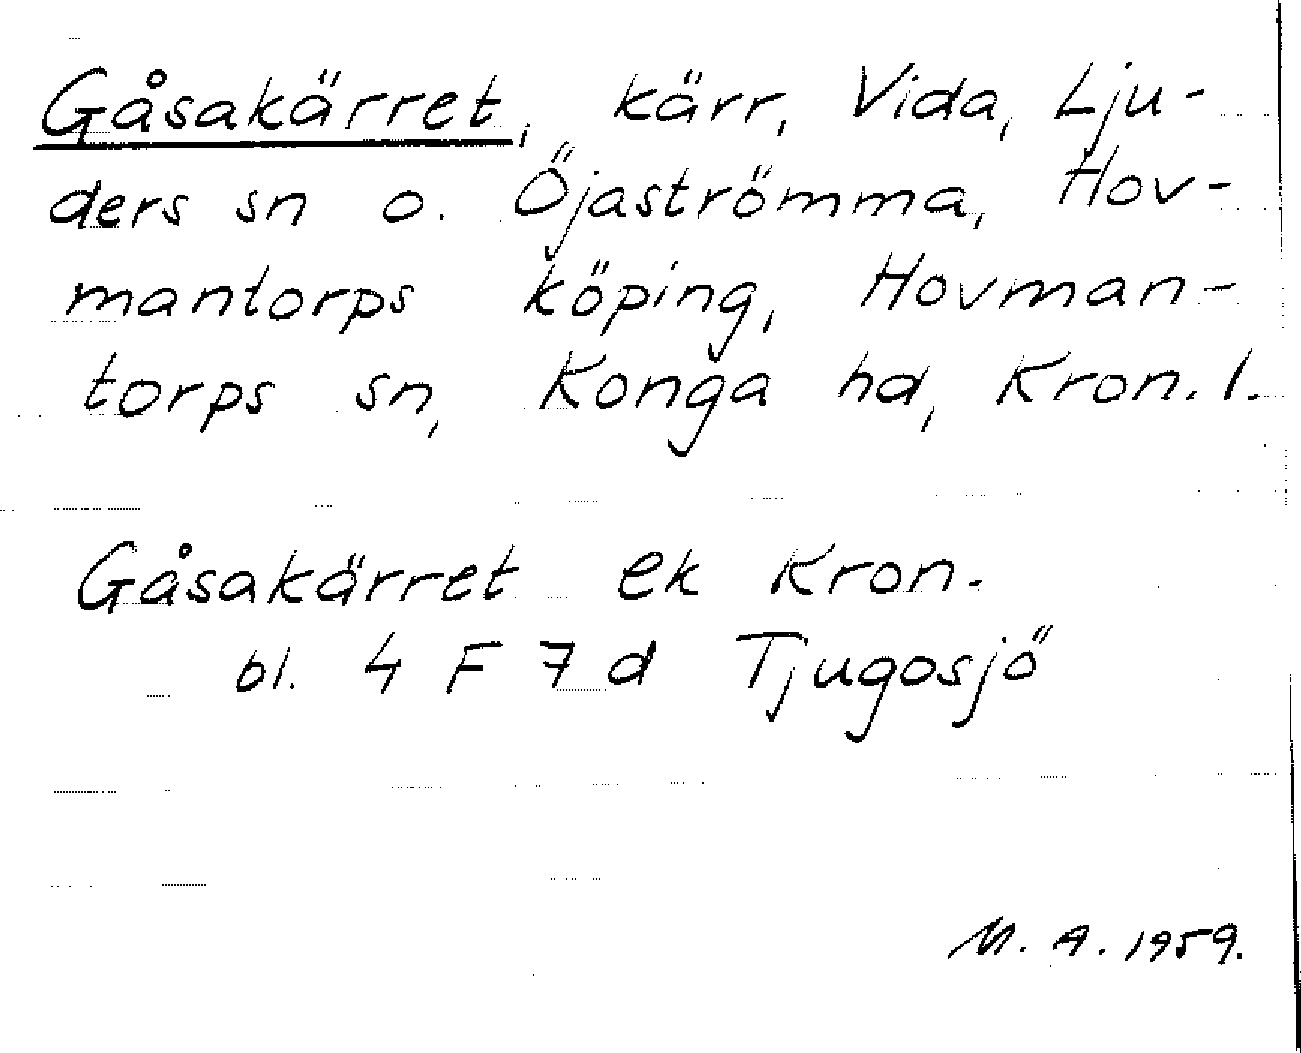 Gåsakärret, kärr, Vida, Lju-
ders sn o. Öjaströmma, Hov-
mantorps köping, Hovman-
torps sn, Konga hd, Kron. l.
Gåsakärret ek Kron.
bl. 4 F 7 d Tjugosjö
M. A. 1959.